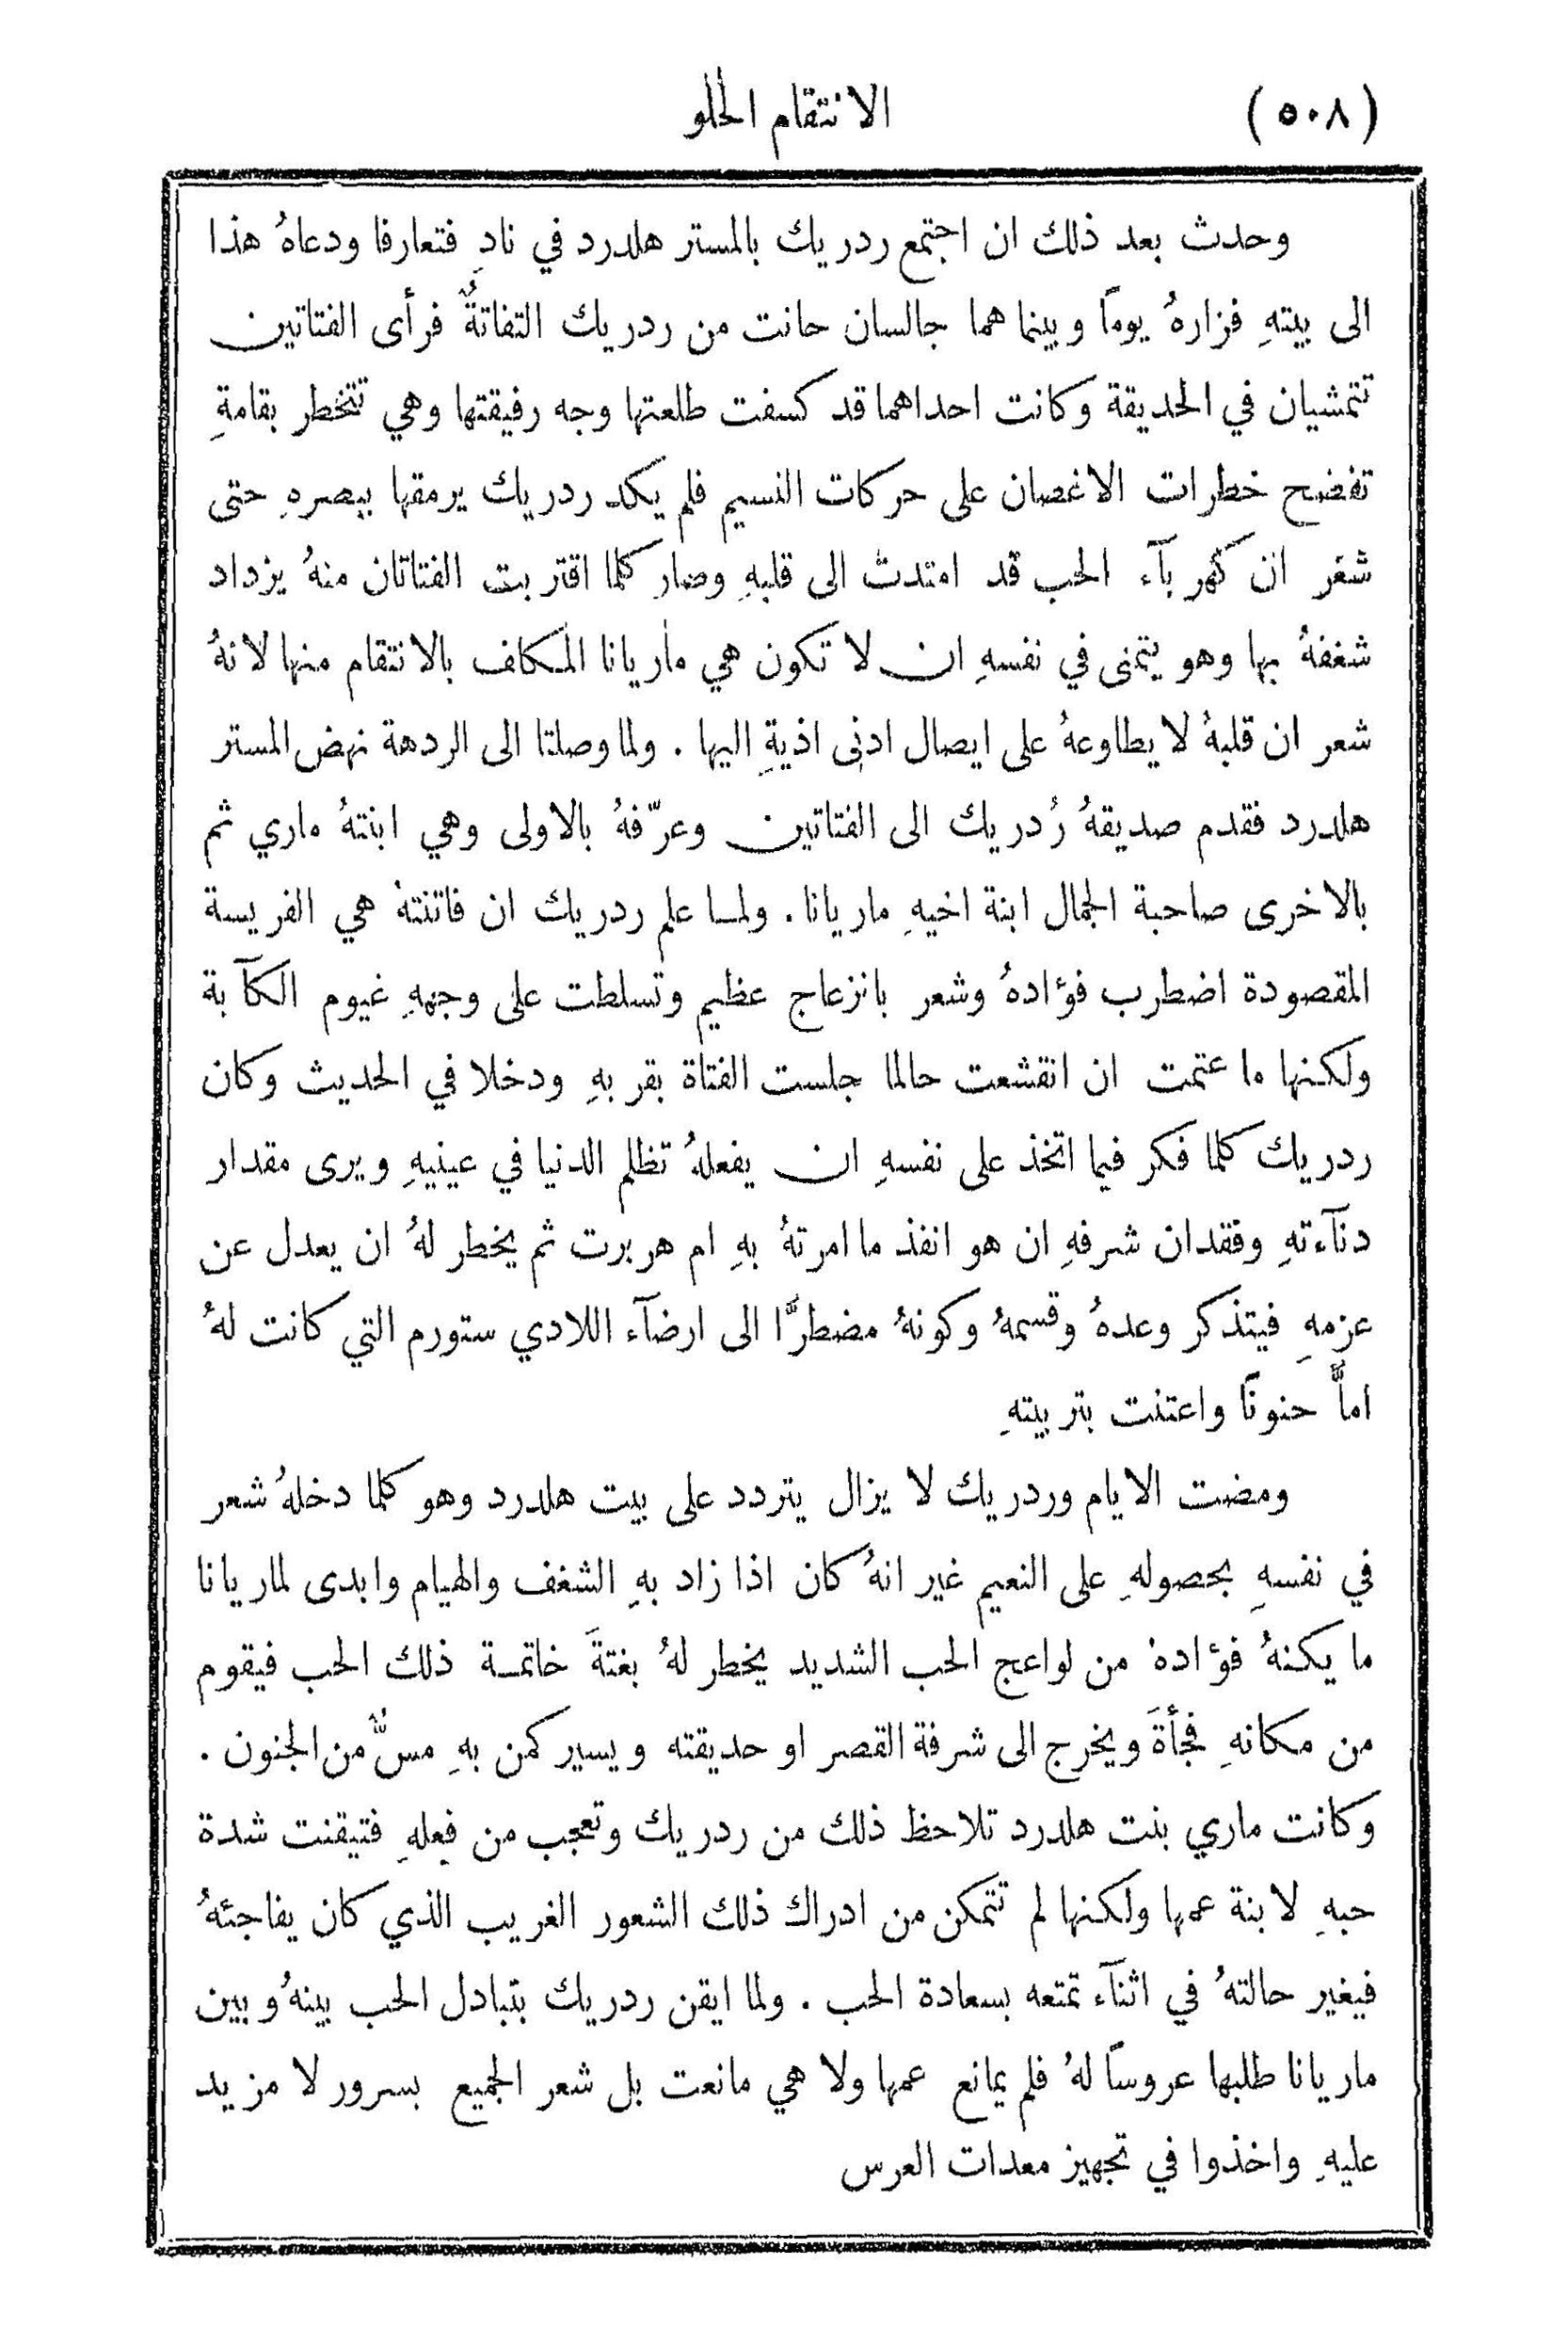 (٥٠٨) الانتقام الحلو
وحدث بعد ذلك ان اجتمع ردريك بالمستر هلدرد في نادٍ فتعارفا ودعاهُ هذا
الى بيتهِ فزارهُ يوماً وبينما هما جالسان حانت من ردريك التفاتةٌ فرأى الفتاتين
تتمشيان في الحديقة وكانت احداهما قد كسفت طلعتها وجه رفيقتها وهي تتخطر بقامةٍ
تفضح خطرات الاغصان على حركات النسيم فلم يكد ردريك يرمقها ببصرهِ حتى
شعر ان كهربآء الحب قد امتدت الى قلبهِ وصار كلما اقتربت الفتاتان منهُ يزداد
شغفهُ بها وهو يتمنى في نفسهِ ان لا تكون هي ماريانا المكلف بالانتقام منها لانهُ
شعر ان قلبهُ لا يطاوعهُ على ايصال ادنى اذيةٍ اليها . ولما وصلتا الى الردهة نهض المستر
هلدرد فقدم صديقهُ ردريك الى الفتاتين وعرّفهُ بالاولى وهي ابنتهُ ماري ثم
بالاخرى صاحبة الجمال ابنة اخيهِ ماريانا . ولما علم ردريك ان فاتنتهُ هي الفريسة
المقصودة اضطرب فؤادهُ وشعر بانزعاج عظيم وتسلطت على وجههِ غيوم الكآبة
ولكنها ما عتمت ان انقشعت حالما جلست الفتاة بقربهِ ودخلا في الحديث وكان
ردريك كلما فكر فيما اتخذ على نفسهِ ان يفعلهُ تظلم الدنيا في عينيهِ ويرى مقدار
دنآءتهِ وفقدان شرفهِ ان هو انفذ ما امرتهُ بهِ ام هربرت ثم يخطر لهُ ان يعدل عن
عزمهِ فيتذكر وعدهُ وقسمهُ وكونهُ مضطرًّا الى ارضآء اللادي ستورم التي كانت لهُ
امًّا حنونًا واعتنت بتربيتهِ
ومضت الايام وردريك لا يزال يتردد على بيت هلدرد وهو كلما دخلهُ شعر
في نفسهِ بحصولهِ على النعيم غير انهُ كان اذا زاد بهِ الشغف والهيام وابدى لماريانا
ما يكنهُ فؤادهُ من لواعج الحب الشديد يخطر لهُ بغتةً خاتمة ذلك الحب فيقوم
من مكانهِ فجأةً ويخرج الى شرفة القصر او حديقته ويسير كمن بهِ مسٌّ من الجنون .
وكانت ماري بنت هلدرد تلاحظ ذلك من ردريك وتعجب من فعلهِ فتيقنت شدة
حبهِ لابنة عمها ولكنها لم تتمكن من ادراك ذلك الشعور الغريب الذي كان يفاجئهُ
فيغير حالتهُ في اثنآء تمتعه بسعادة الحب . ولما ايقن ردريك بتبادل الحب بينهُ وبين
ماريانا طلبها عروسًا لهُ فلم يمانع عمها ولا هي مانعت بل شعر الجميع بسرور لا مزيد
عليهِ واخذوا في تجهيز معدات العرس